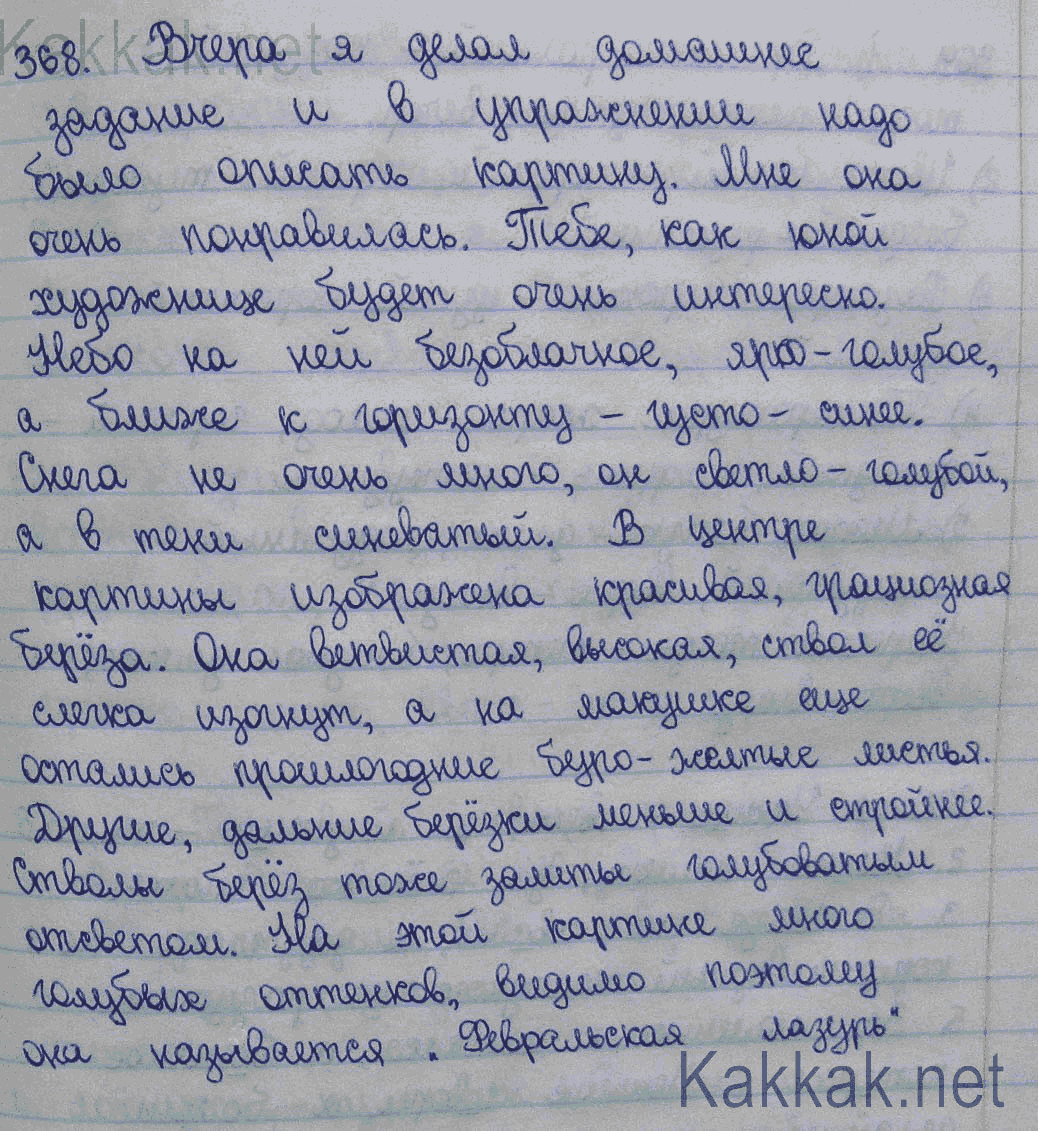 Kakkak.net
368. Вчера я делал домашнее
задание и в упражнении надо
было описать картину. Мне она
очень понравилась. Тебе, как юной
художнице будет очень интересно.
Небо на ней безоблачное, ярко-голубое,
а ближе к горизонту - густо-синее.
Снега не очень много, он светло-голубой,
а в тени синеватый. В центре
картины изображена красивая, грациозная
берёза. Она ветвистая, высокая, ствол её
слегка изогнут, а на макушке еще
остались прошлогодние буро-желтые листья.
Другие, дальние берёзки меньше и стройнее.
Стволы берёз тоже залиты голубоватым
отсветом. На этой картине много
голубых оттенков, видимо поэтому
она называется „Февральская лазурь"
Kakkak.net